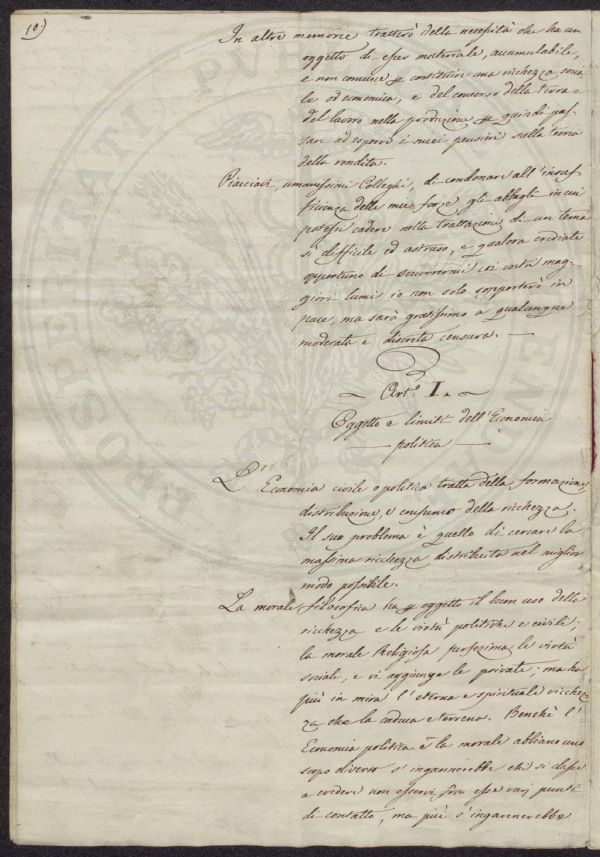 10)
In altre memorie tratterò della necessità che ha un
oggetto di esser materiale, accumulabile,
e non comune p costituire una richezza socia
le od economica, e del concorso della terra e
del lavoro nella produzione p quindi pas-
sare ad esporre i miei pensieri sulla teoria
della rendita.
Piacciavi, umanissimi Colleghi, di condonare all'insuf-
ficienza delle mie forze gli abbagli in cui
potessi cadere nella trattazione di un tema
sì difficile ed astruso, e qualora crediate
opportuno di soccorrermi coi vostri mag-
giori lumi io non solo sopporterò in
pace, ma sarò gratissimo a qualunque
moderata e discreta censura.
Art.o I.
Oggetto e limiti dell'Economia
politica
L'Economia civile o politica tratta della formazione,
distribuzione, e consumo della richezza.
Il suo problema è quello di cercare la
massima richezza distribuita nel miglior
modo possibile.
La morale filosofia ha p oggetto il buon uso della
richezza e le virtù politiche e civili;
la morale Religiosa perfeziona le virtù
sociali, e vi aggiunge le private; ma ha
più in mira l'eterna e spirituale richez
za che la caduca e terrena. Benchè l'
Economia politica e la morale abbiano uno
scopo diverso s'ingannerebbe chi si desse
a credere non esservi fra esse varj punti
di contatto, ma più s'ingannerebbe